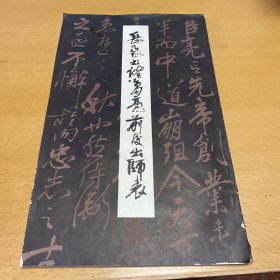 臣亮言先帝創業未
半而中道崩殂今天
岳飛書諸葛亮前後出師表
秋也然侍衛
之臣不懈於内忠志之士